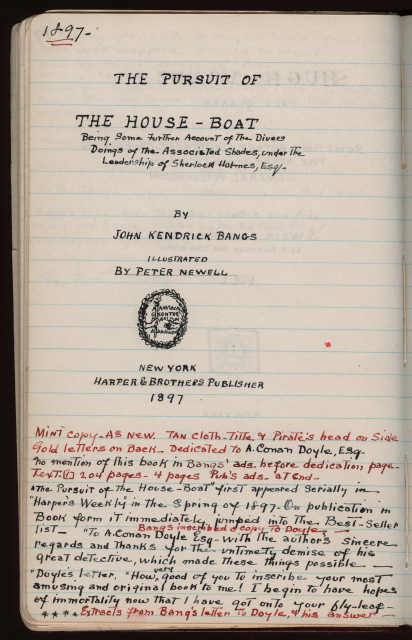 1897-
THE PURSUIT OF
THE HOUSE-BOAT
Being Some Further Account of The Divers
Doings of The Associated Shades, under The
Leadership of Sherlock Holmes, Esq/-
BY
JOHN KENDRICK BANGS
ILLUSTRATED
BY PETER NEWELL
NEW YORK
HARPER & BROTHERS PUBLISHER
1897
MINT COPY- AS NEW. TAN CLOTH- Title & Pirate's head on Side
Gold letters on Back- Dedicated to A.Conan Doyle, Esq-
no mention of this book in Bangs' ads. before dedication page-
Text: 204 pages- 4 pages Pub's ads. at end-
"The Pursuit of the House-Boat" first appeared serially in
"Harper's Weekly in the Spring of 1897- On publication in
Book form it immediately jumped into The Best-Seller
list- Bangs inscribed a copy To Doyle-
"To A.Conan Doyle Esq- with the author's sincere
regards and thanks for the untimely demise of his
great detective, which made these things possible-
"Doyle's letter. "How very good of you to inscribe your most
amusing and original book to me! I begin to have hopes
of immortality now that I have got onto your fly-leaf-
**** Extracts from Bang's letter to Doyle, & his answer